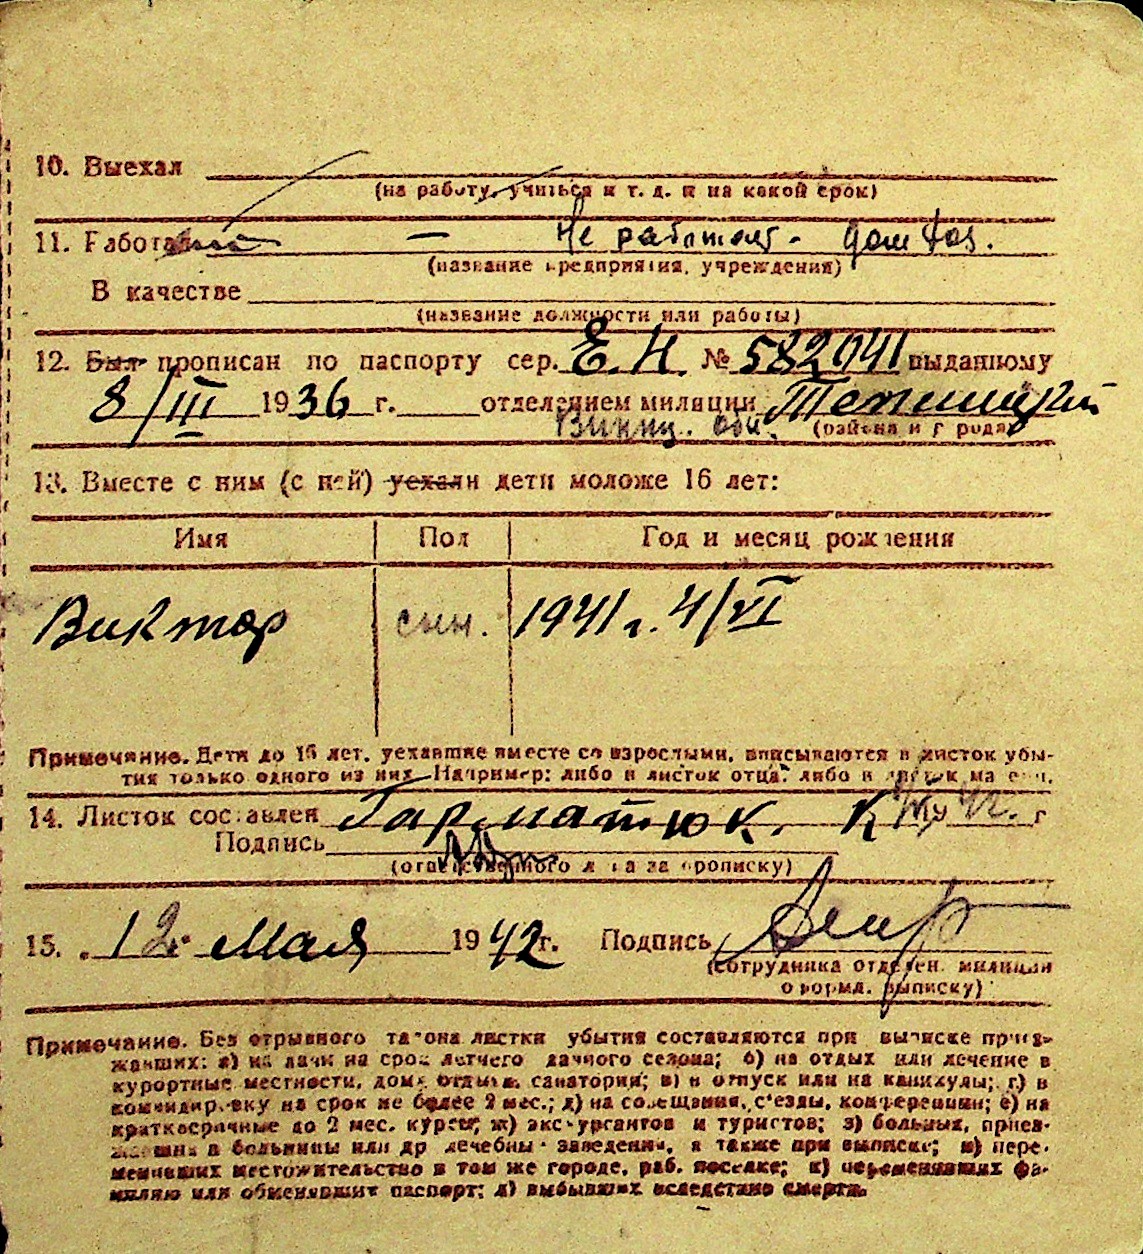 10. Выехал
(на работу, учиться и т. д. и на какой срок)
11. Работал — Не работает. дом хоз.
(название предприятия, учреждения)
В качестве
(название должности или работы)
12. Был прописан по паспорту сер. Е.Н. № 582041 выданному
8/III 1936 г. отделением милиции Теплицкий
Винниц. обл. (района и города)
13. Вместе с ним (с ней) уехали дети моложе 16 лет:
Имя Пол Год и месяц рождения
Виктор син. 1941 г. 4/VI
Примечание. Дети до 16 лет, уехавшие вместе со взрослыми, вписываются в листок убы-
тия только одного из них. Например: либо в листок отца, либо в листок матери.
14. Листок составлен Гарматюк. К г
Подпись
(ответственного лица за прописку)
15. 12 Мая 1942 г. Подпись
(сотрудника отделен. милиции
оформл. выписку)
Примечание. Без отрывного талона листки убытия составляются при выписке приез-
жавших: а) на дачи на срок летнего дачного сезона; б) на отдых или лечение в
курортные местности, дома отдыха, санатории; в) в отпуск или на каникулы; г) в
командировку на срок не более 2 мес.; д) на совещания, съезды, конференции; е) на
краткосрочные до 2 мес. курсы; ж) экскурсантов и туристов; з) больных, приез-
жавших в больницы или др лечебны заведения, а также при выписке; и) пере-
менивших местожительство в том же городе, раб. поселке; к) переменивших фа-
милию или обменявших паспорт; л) выбывших вследствие смерти.